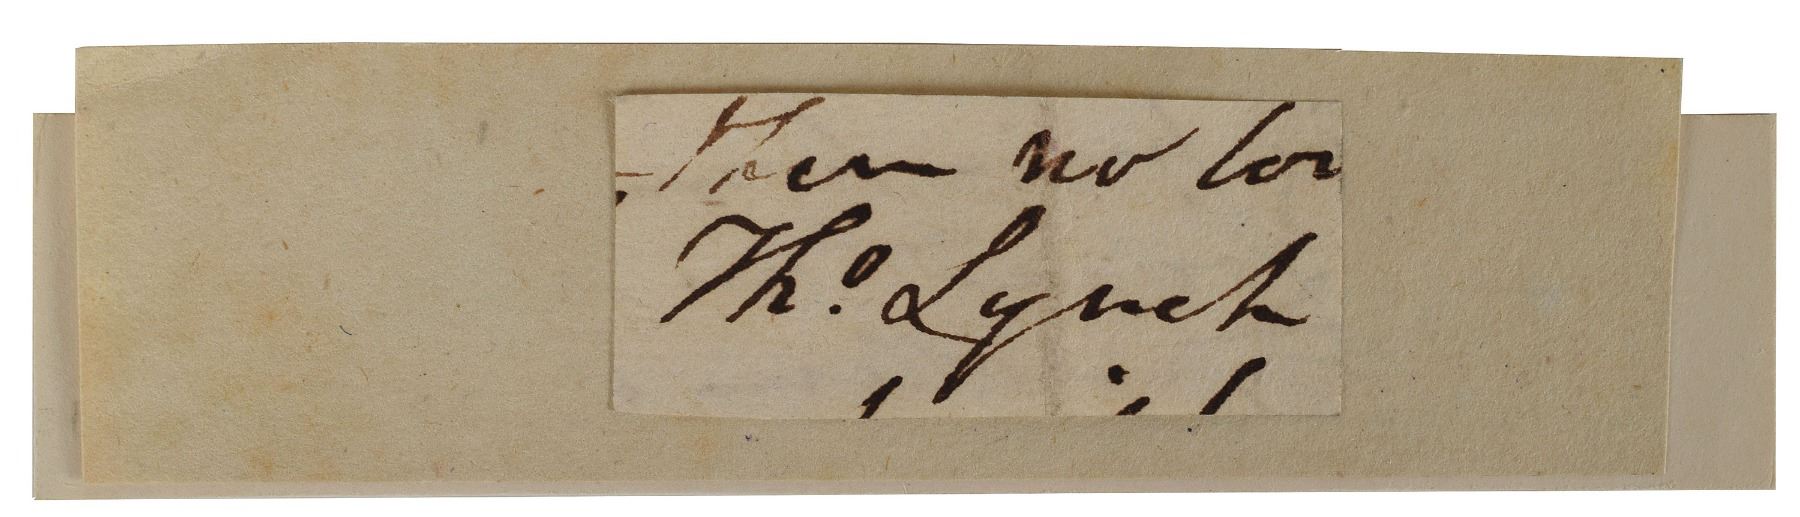 then no lon
Tho. Lynch